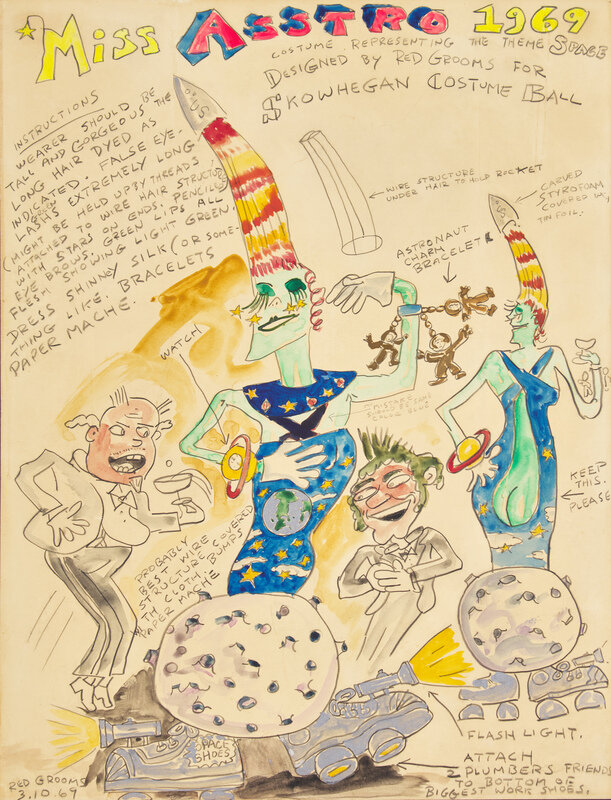 Miss Asstro 1969
COSTUME REPRESENTING THE THEME SPACE
DESIGNED BY RED GROOMS FOR
SKOWHEGAN COSTUME BALL
INSTRUCTIONS
WEARER SHOULD BE
TALL AND GORGEOUS THE
LONG HAIR DYED AS
INDICATED. FALSE EYE-
LASHES EXTREMELY LONG
(MIGHT BE HELD UP BY THREADS
ATTACHED TO WIRE HAIR STRUCTURE
WITH STARS ON ENDS. PENCILED
EYE BROWS, GREEN LIPS ALL
FLESH SHOWING LIGHT GREEN
DRESS SHINNEY SILK (OR SOME-
THING LIKE. BRACELETS
PAPER MACHE.
US
WIRE STRUCTURE
UNDER HAIR TO HOLD ROCKET
CARVED
STYROFOAM
COVERED W/
TIN FOIL.
ASTRONAUT
CHARM
BRACELET
WATCH
KEEP
THIS.
PLEASE
PROBABLY
BEST WIRE
STRUCTURE COVERED
WITH CLOTH BUMPS
PAPER MACHE
SPACE
SHOES
FLASH LIGHT.
ATTACH
2 PLUMBERS FRIENDS
TO BOTTOM OF
BIGGEST WORK SHOES.
RED GROOMS
3.10.69